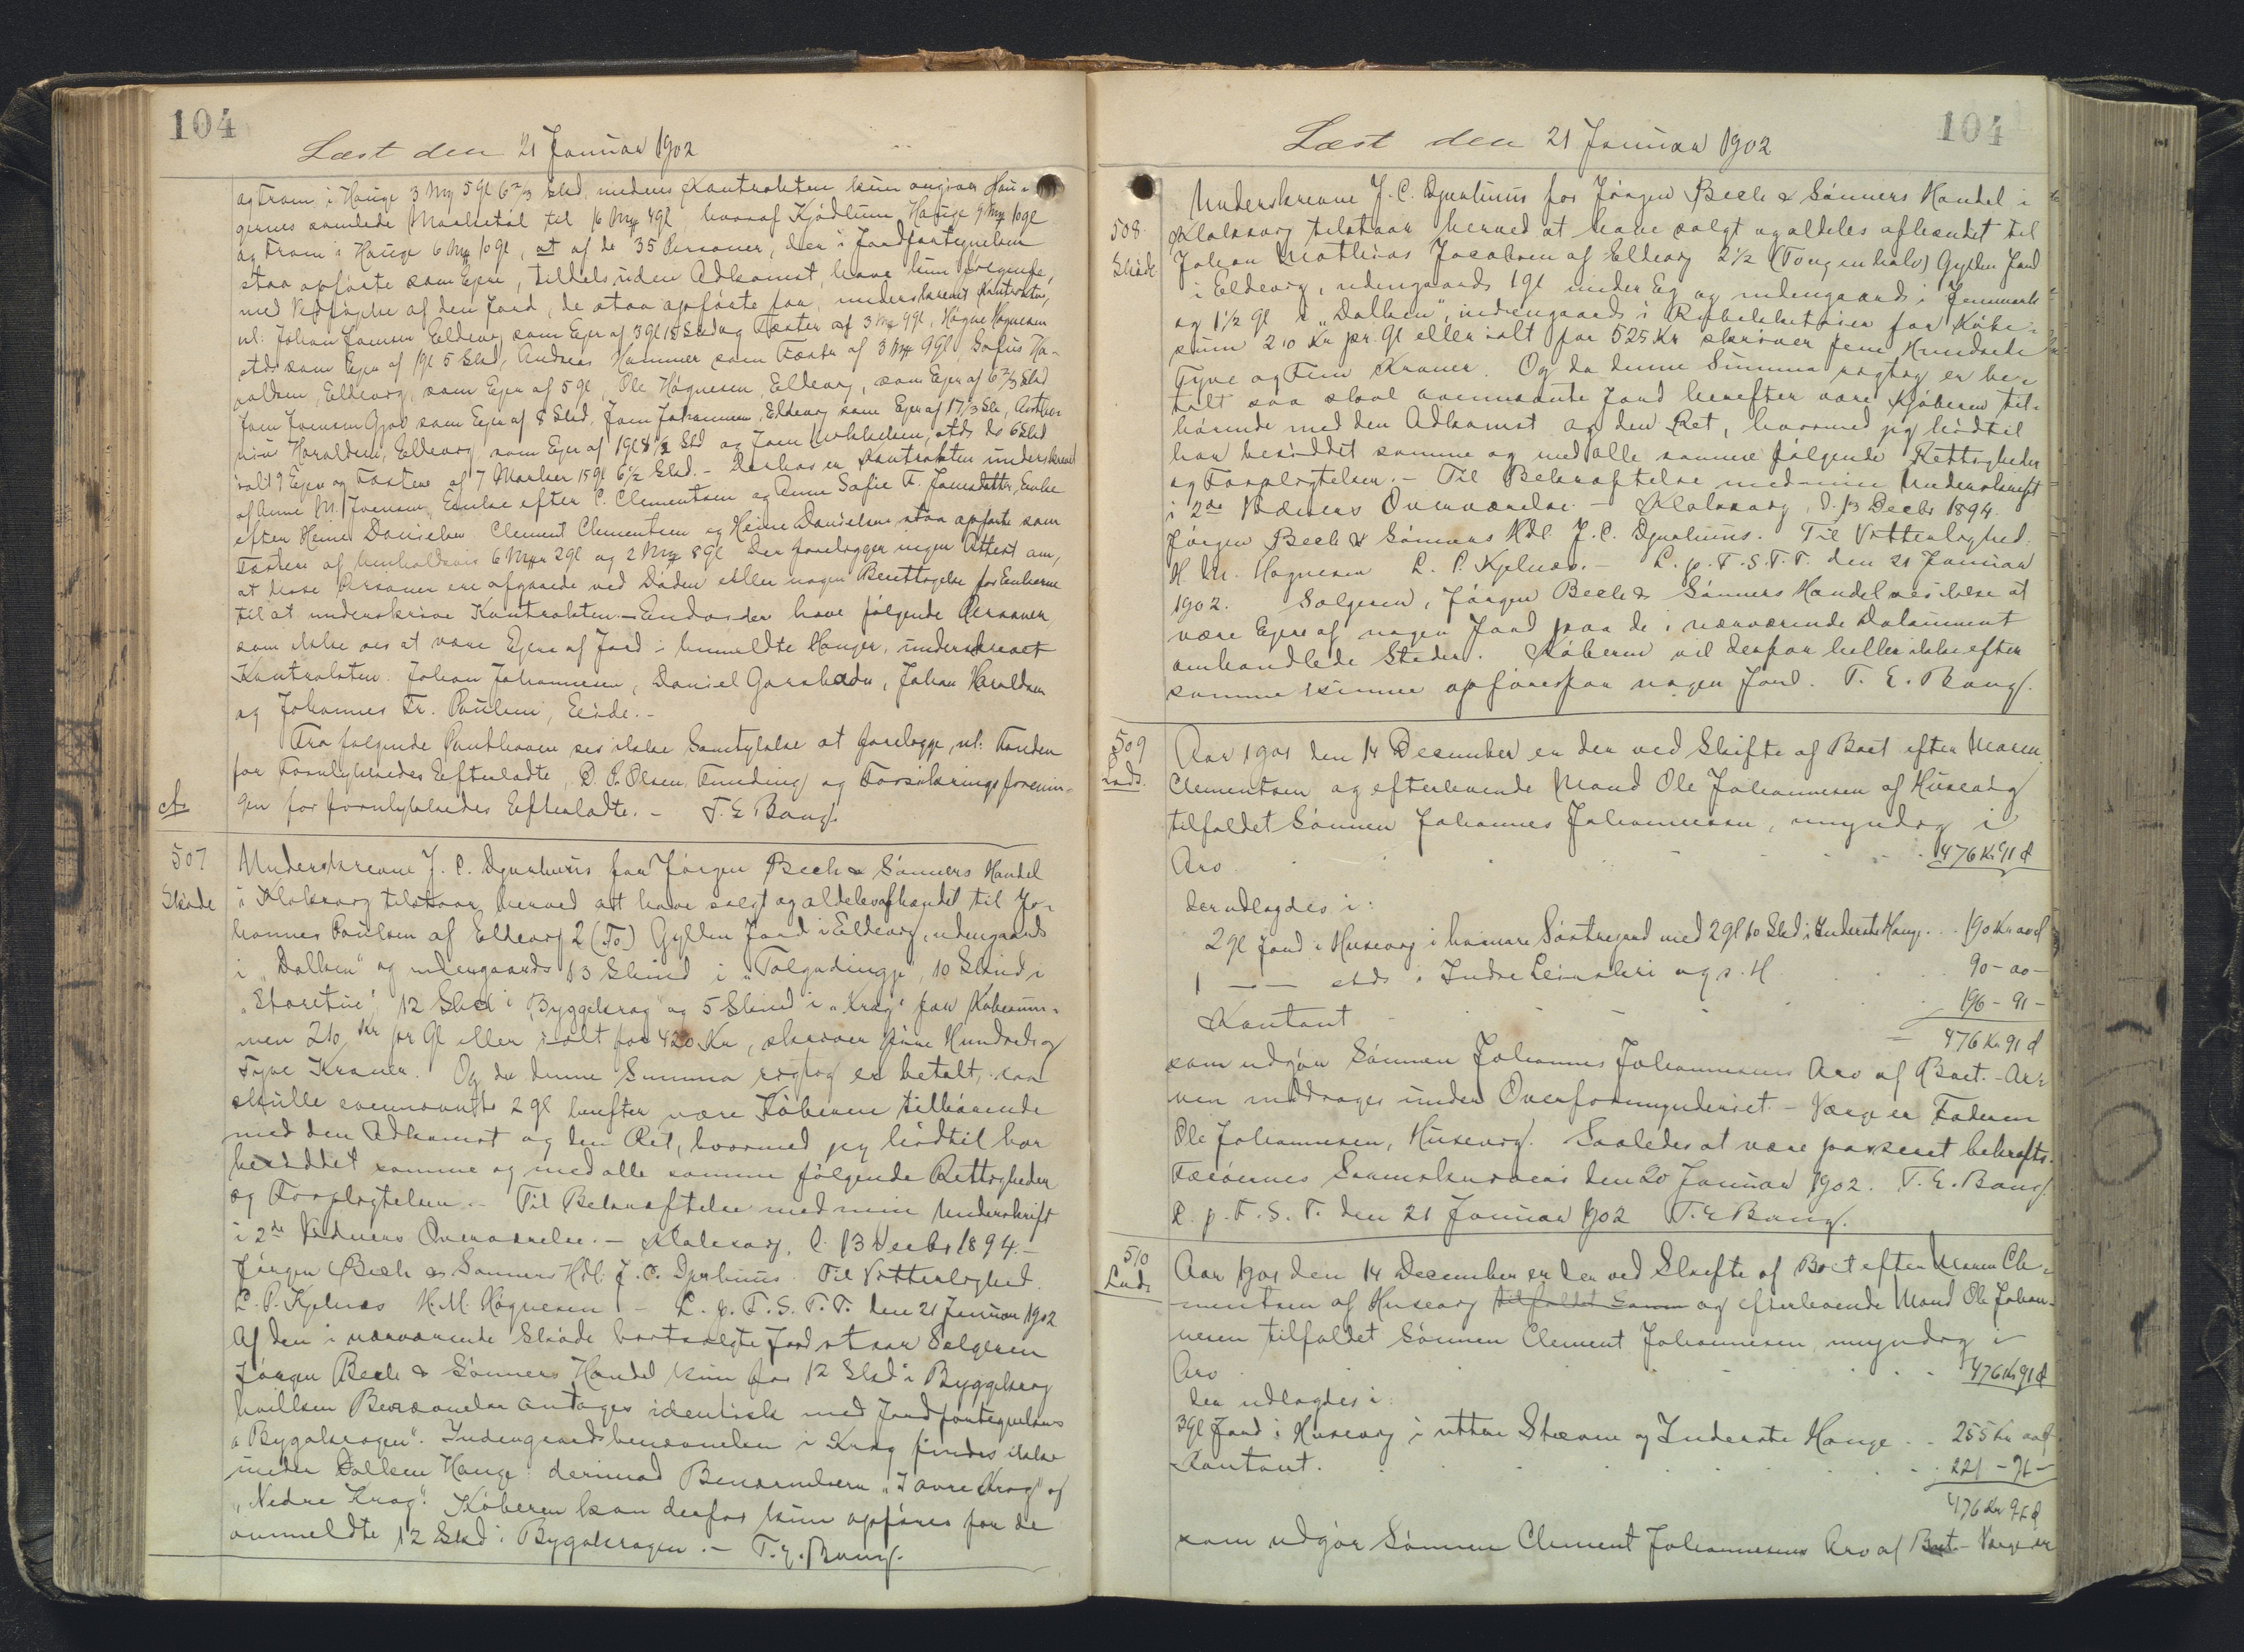 104
Læst den 21 Januar 1902
og Fram i Hauge 3 Mrg 5 gl 6 2/3 Skd, medens Kontrakten kun angiver Hau-
gernes samlede Marketal til 16 Mrg 4 gl, hvoraf Hauge 9 Mrk 10 gl
og Fram i Hauge 6 Mrg 10 gl, at af de 35 Personer, der i Jordfortegnelsen
staa opførte som Ejere, tildels uden Adkomst, have kun følgende,
med Vedføjelse af den Jord, de staa opførte for, underskrevet Kontrakten,
nl: Johan Joensen Eldevig som Ejer af 3 gl 15 Skd og Fæster af 3 Mrk 9 gl, Høgne Høgnesen
stds som Ejer af 1 gl 5 Skd, Andreas Hammer som Fæster af 3 Mrk 9 gl, Sofus Ha-
raldsen, Eldevig, som Ejer af 5 gl, Ole Høgnesen, Eldevig, som Ejer af 6 2/3 Skd
Joen Joensen Gjov som Ejer af 8 Skd, Joen Johannesen, Eldevig som Ejer af 17 1/3 Sk,
Haraldsen, Eldevig, som Ejer af 1 gl 8 1/2 Skd og Joen Mikkelsen, stds do 6 Skd
ialt 9 Ejere og Fæstere af 7 Marker 15 gl 6 1/2 Skd. - Derhos er Kontrakten underskrevet
af Anne M. Joensen, Enke efter C. Clementsen og Anne Sofie F. Joensdatter, Enke
efter Heine Danielsen. Clement Clementsen og Heine Danielsen staa opførte som
Fæstere af henholdsvis 6 Mrk 2 gl og 2 Mrk 8 gl. Der foreligger ingen Attest om,
at disse Personer ere afgaaede ved Døden eller nogen Berettigelse for Enkerne
til at underskrive Kontrakten. - Endvidere have følgende Personer,
som ikke ses at være Ejere af Jord i bemeldte Hauger, underskrevet
Kontrakten. Johan Johannesen, Daniel Garsbadn, Johan Haraldsen
og Johannes Fr. Paulsen, Eiðde. -
Fra følgende Panthavere ses ikke Samtykke at foreligge, nl: Fonden
for Forulykkedes Efterladte, D. P. Olsen, Funding og Forsikringsforenin-
gen for forulykkedes Efterladte. - T. E. Bang.
507
Skøde
Underskrevne J. C. Djurhuus for Jørgen Bech & Sønners Handel
i Klaksvig tilstaar herved at have solgt og aldeles afhændet til Jo-
hannes Poulsen af Eldevig 2 (To) Gylden Jord i Eldevig, udengaards
i "Dalken" og indengaards 13 Skind i "Tolgadingji", 10 Skind i
"Storetue", 12 Skd i Byggekrog og 5 Skind i "Krog" for Købesum-
men 210 Kr pr Gl eller ialt for 420 Kr, skriver fire Hundrede og
Tyve Kroner. Og da denne Summa rigtig er betalt, saa
skulle ovennævnte 2 gl herefter være Køberen tilhørende
med den Adkomst og den Ret, hvormed jeg hidtil har
besiddet samme og med alle samme følgende Rettigheder
og Forpligtelser. - Til Bekræftelse med min Underskrift
i 2de Vidners Overværelse. - Klaksvig, d. 13 Decbr 1894. -
Jørgen Bech & Sønners Hdl. J. C. Djurhuus. Til Vitterlighed.
L. P. Kjølnæs H. M. Høgnesen - L. p. F. S. T. T. den 21 Januar 1902
Af den i nærværende Skøde bortsolgte Jord staar Sælgeren
Jørgen Bech & Sønners Handel kun for 12 Skd i Byggekrog
hvilken Benævnelse antages identisk med Jordfortegnelsens
"Bygakrogen". Indengaardsbenævnelsen i Krog findes ikke
under Dalken Hauge: derimod Benævnelserne "I øvre Krog" og
"Nedre Krog". Køberen kan derfor kun opføres for de
anmeldte 12 Skd i Bygakrogen. - T. E. Bang.
104
Læst den 21 Januar 1902
508
Skøde
Underskrevne J. C. Djurhuus for Jørgen Bech & Sønners Handel i
Klaksvig tilstaar herved at have solgt og aldeles afhændet til
Johan Mathias Jacobsen af Eldevig 2 1/2 (To og en halv) Gylden Jord
i Eldevig, udengaards 1 gl under Eg og indengaards i
og 1 1/2 gl i "Dalken", indengaards i for Købe-
sum 210 Kr pr. Gl eller ialt for 525 Kr skriver fem Hundrede
Tyve og Fem Kroner. Og da denne Summa rigtig er be-
talt saa skal ovennævnte Jord herefter være Kjøberen til-
hørende med den Adkomst og den Ret, hvormed jeg hidtil
har besiddet samme og med alle samme følgende Rettigheder
og Forpligtelser. - Til Bekræftelse med min Underskrift
i 2de Vidners Overværelse - Klaksvig, d. 13 Decbr 1894.
Jørgen Bech & Sønners Hdl. J. C. Djurhuus. Til Vitterlighed.
H. M. Høgnesen L. P. Kjølnæs. - L. p. F. S. T. T. den 21 Januar
1902. Sælgeren, Jørgen Bech & Sønners Handel ses ikke at
være Ejere af nogen Jord paa de i nærværende Dokument
omhandlede Steder. Køberen vil derfor heller ikke efter
samme kunne opføres for nogen Jord. T. E. Bang.
509
Lods.
Aar 1901 den 14 December er der ved Skifte af Boet efter Maren
Clementsen og efterlevende Mand Ole Johannesen af Husevig
tilfaldet Sønnen Johannes Johannesen, umyndig i
Arv . . . 476 Kr 91 Ø
der udlagdes i:
2 gl Jord i Husevig i husare Søstregard med 2 gl 10 Skd i Inderste Hauge . . 190 Kr 00 Ø
1 - - stds i Indre Leirokri og s. H . . 90 - 00 -
Kontant . . 196 - 91 -
= 476 Kr 91 Ø
som udgør Sønnen Johannes Johannesens Arv af Boet. - Ar-
ven inddrages under Overformynderiet. - Værge er Faderen
Ole Johannesen, Husevig. Saaledes at være passeret bekræfts.
Færøernes Sorenskriveri den 20 Januar 1902. T. E. Bang.
L. p. F. S. T. den 21 Januar 1902 T. E. Bang.
510
Lods
Aar 1901 den 14 December er der ved Skifte af Boet efter Maren Cle-
mentsen af Husevig tilfaldet Sønn og efterlevende Mand Ole Johan-
nesen tilfaldet Sønnen Clement Johannesen umyndig i
Arv . . . 476 Kr 91 Ø
der udlagdes i:
3 gl Jord i Husevig i uttere Stævne og Inderste Hauge . . 255 Kr 00 Ø
Kontant . . . 221 - 91 -
476 Kr 91 Ø
som udgør Sønnen Clement Johannesens Arv af Boet - Værge er